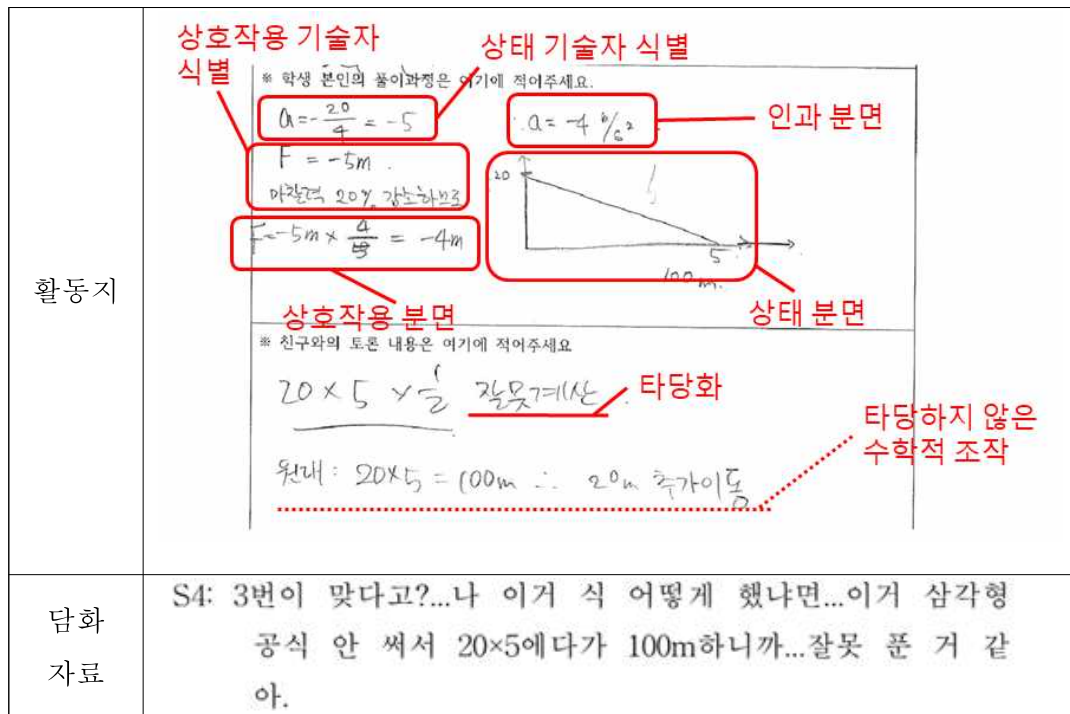 활동지
상호작용 기술자
식별
상태 기술자 식별
※ 학생 본인의 풀이과정은 여기에 적어주세요.
a = -20/4 = -5
∴ a = -4 ㎧²
인과 분면
F = -5m.
마찰력 20% 감소하므로
F = -5m × 4/5 = -4m
20
5
100m.
상호작용 분면
상태 분면
※ 친구와의 토론 내용은 여기에 적어주세요
20 × 5 × 1/2 잘못계산
타당화
타당하지 않은
수학적 조작
원래 : 20×5 = 100m ∴ 20m 추가이동
담화
자료
S4: 3번이 맞다고?...나 이거 식 어떻게 했냐면...이거 삼각형
공식 안 써서 20×5에다가 100m하니까...잘못 푼 거 같
아.